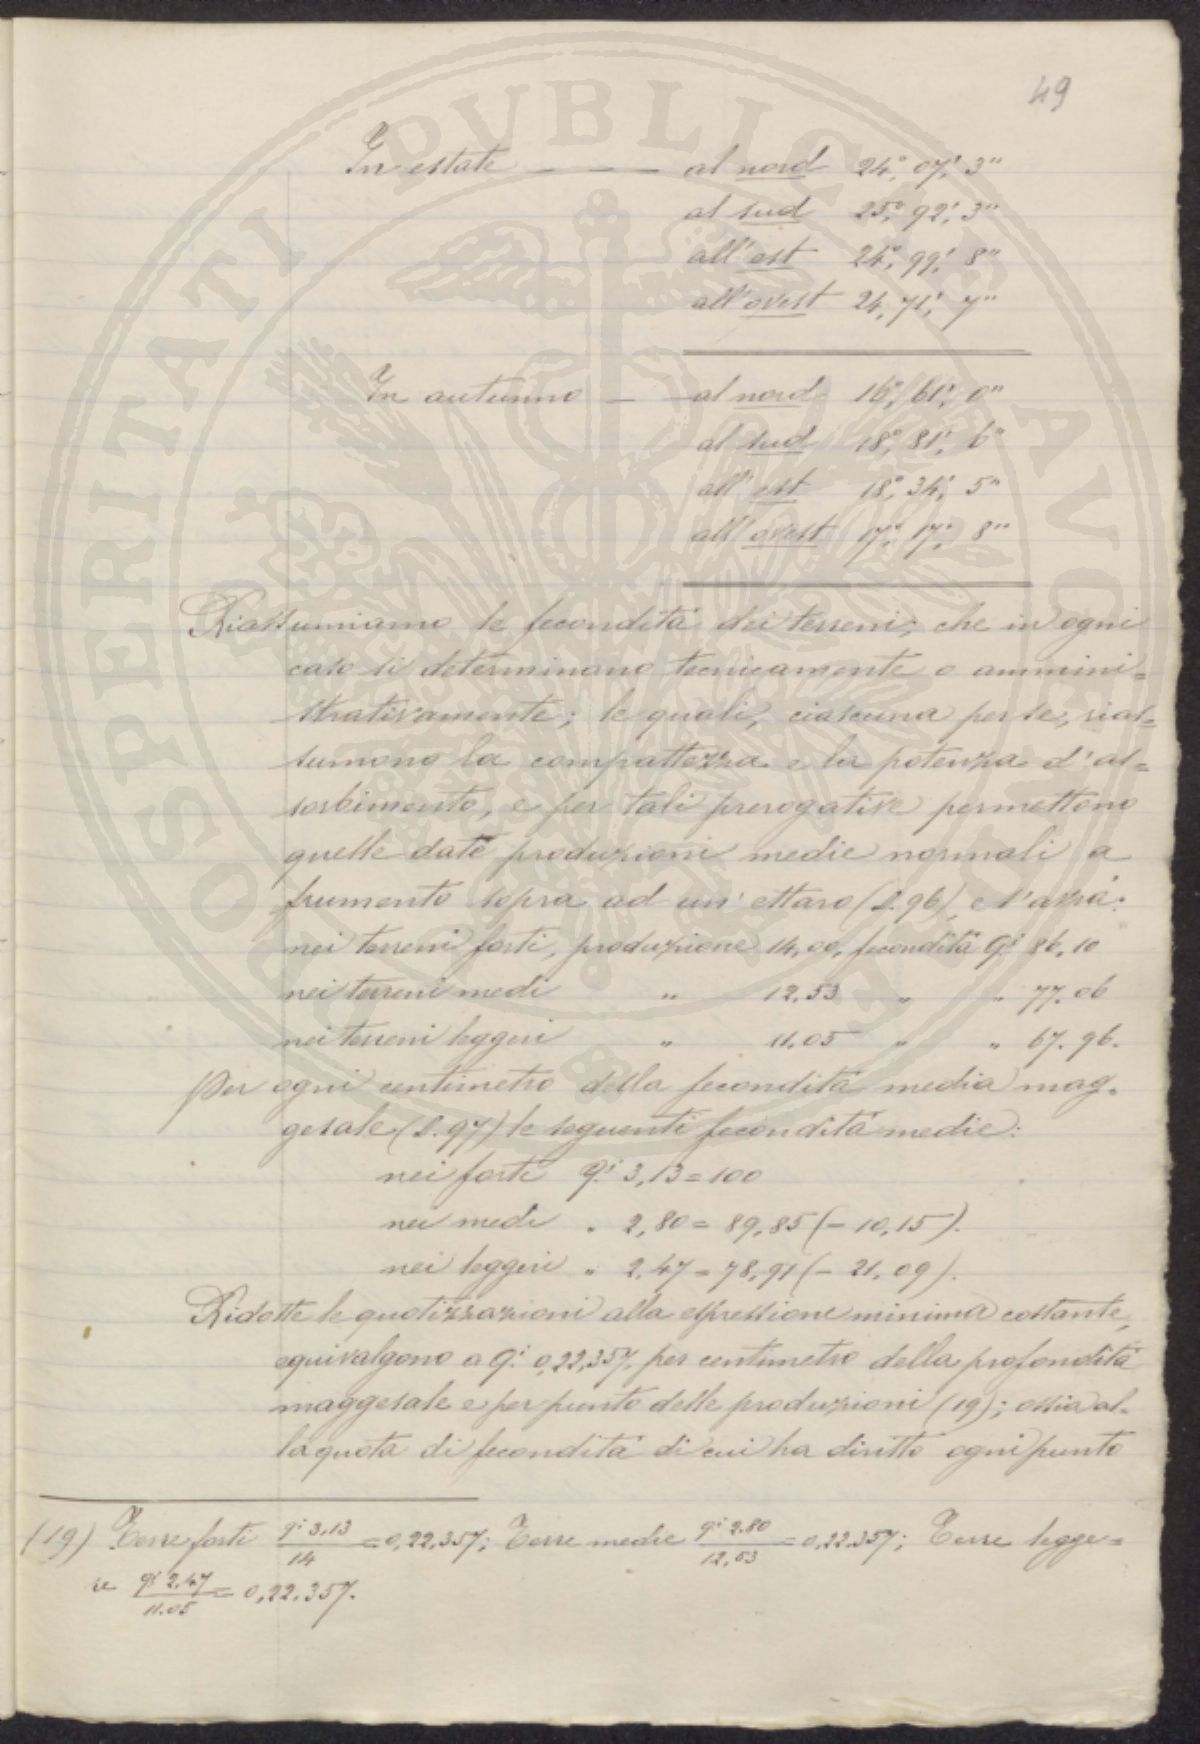 49
In estate — — — al nord 24°, 07', 3"
al sud 25°, 92', 3"
all'est 24°, 99', 8"
all'ovest 24, 71', 7"
In autunno — — al nord 16°, 61', 0"
al sud 18°, 81', 6"
all'est 18°, 34', 5"
all'ovest 17°, 17', 8"
Riassumiamo le fecondità dei terreni, che in ogni
caso si determinano tecnicamente o ammini=
strativamente; le quali, ciascuna per se, rias=
sumono la compattezza e la potenza d'as=
sorbimento, e per tali prerogative permettono
quelle date produzioni medie normali a
frumento sopra ad un' ettaro (L. 96), e s'avrà:
nei terreni forti, produzione 14,00, fecondità Q.i 86,10
nei terreni medi " 12.53 " " 77.06
nei terreni leggeri " 11.05 " " 67.96.
Per ogni centimetro della fecondità media mag-
gesale (L. 97) le seguenti fecondità medie:
nei forti Q.i 3,13 = 100
nei medi " 2,80 = 89,85 (- 10,15).
nei leggeri " 2,47 = 78,91 (- 21,09).
Ridotte le quotizzazioni alla espressione minima costante,
equivalgono a Q.i 0,22,357, per centimetro della profondità
maggesale e per punto delle produzioni (19); ossia al-
la quota di fecondità di cui ha diritto ogni punto
(19) Terre forti q.i 3,13/14 = 0,22,357; Terre medie q.i 2,80/12,53 = 0,22,357; Terre legge=
re q.i 2,47/11.05 = 0,22.357.
PROSPERITATI PUBLICAE AUGENDAE